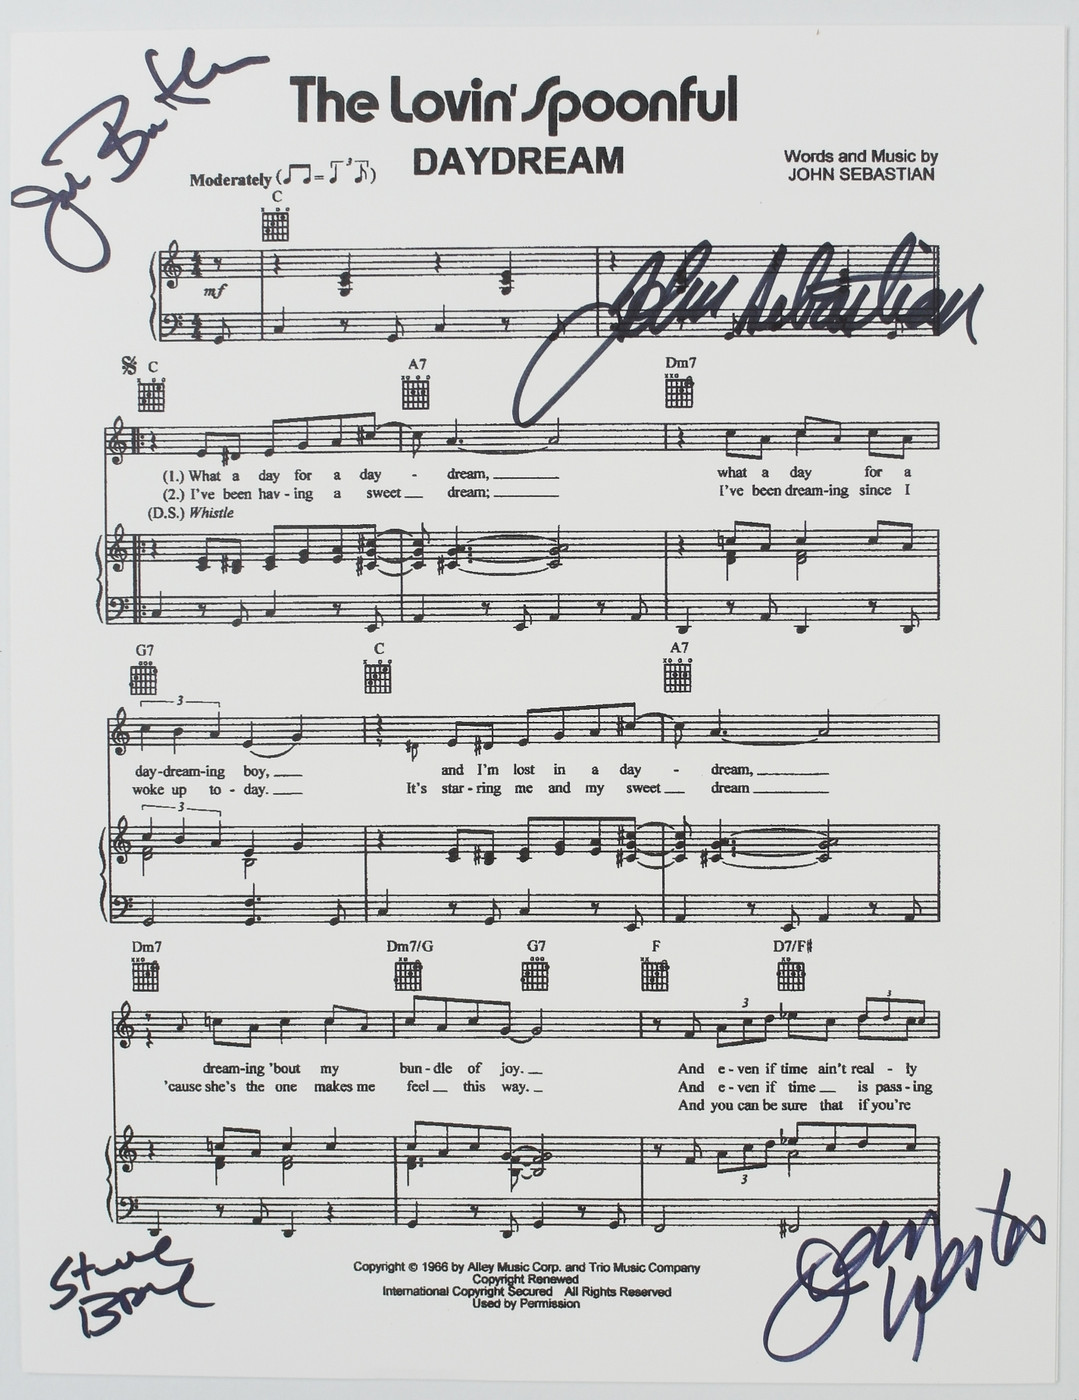 The Lovin' Spoonful
DAYDREAM
Words and Music by
JOHN SEBASTIAN
Moderately
C
mf
John Sebastian
C A7 Dm7
(1.) What a day for a day - dream, what a day for a
(2.) I've been hav - ing a sweet dream; I've been dream-ing since I
(D.S.) Whistle
G7 C A7
3
day-dream-ing boy, and I'm lost in a day - dream,
woke up to - day. It's star - ring me and my sweet dream
3
Dm7 Dm7/G G7 F D7/F#
3 3
dream-ing 'bout my bun - dle of joy. And e - ven if time ain't real - ly
'cause she's the one makes me feel this way. And e - ven if time is pass - ing
And you can be sure that if you're
3
Steve
Boone
Copyright © 1966 by Alley Music Corp. and Trio Music Company
Copyright Renewed
International Copyright Secured All Rights Reserved
Used by Permission